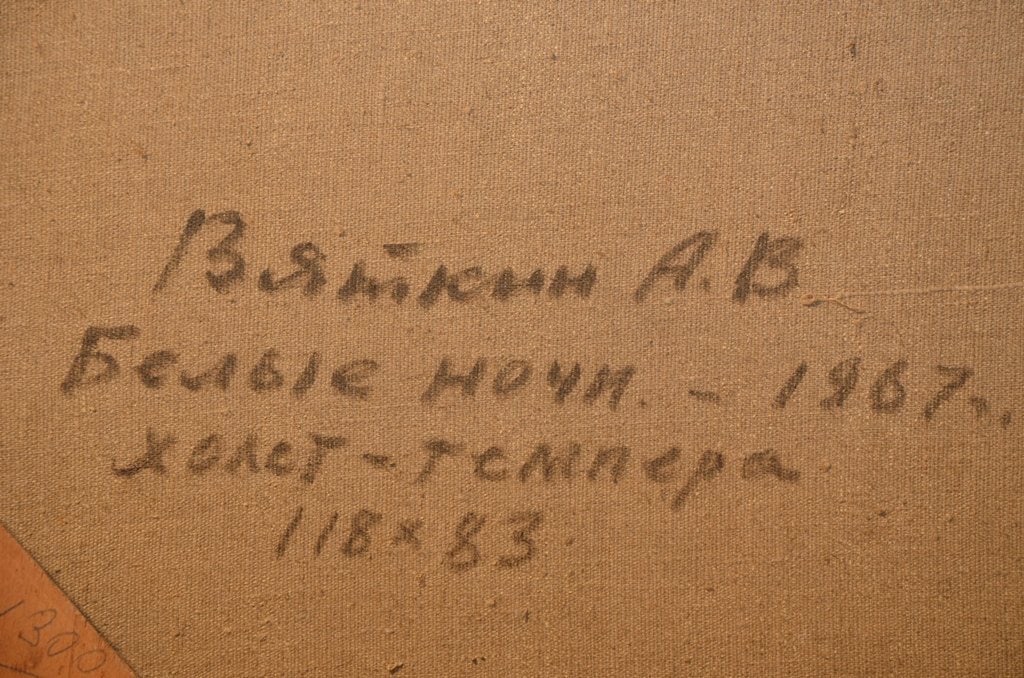 Вяткин А.В.
Белые ночи. - 1967г.
холст-темпера.
118×83.
1300